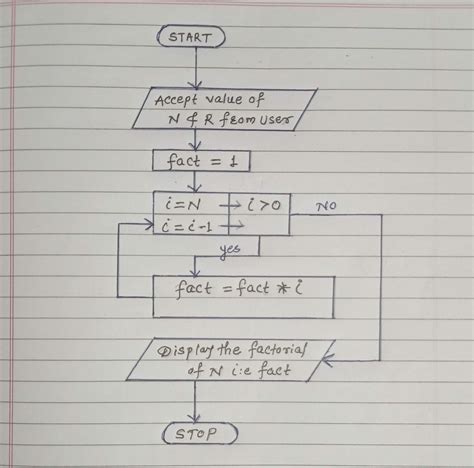 START
Accept value of
N & R from user
fact = 1
i=N → i>0
i = i-1 →
NO
yes
fact = fact * i
Display the factorial
of N i:e fact
STOP